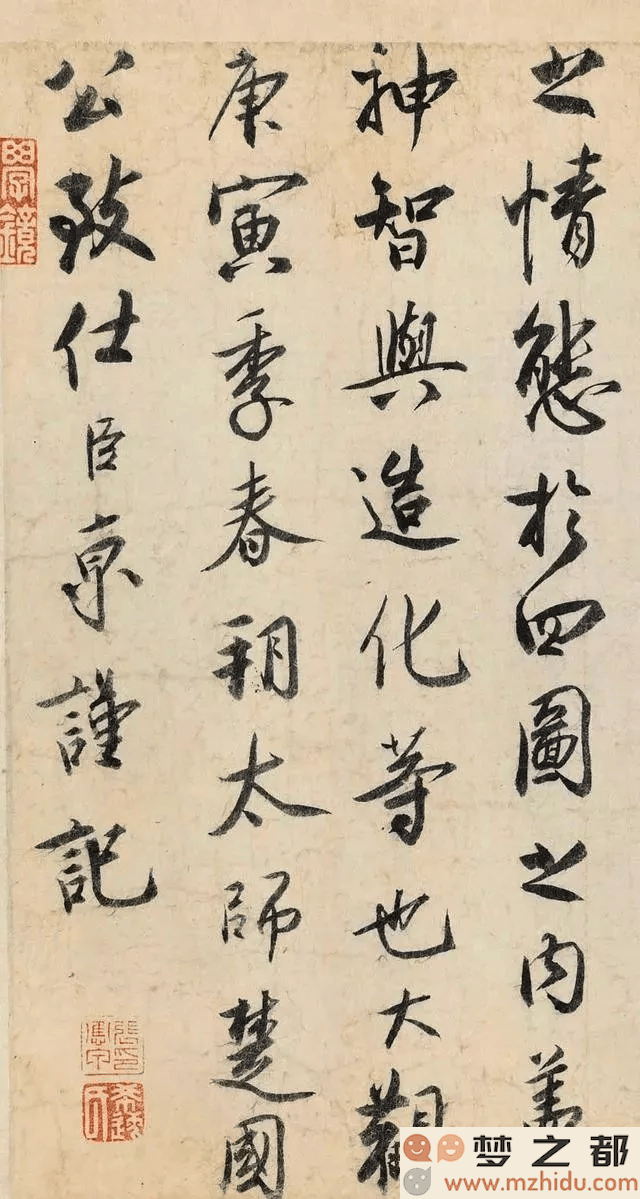 之情態於四圖之内蓋
神智與造化等也大觀
庚寅季春朔太師楚國
公致仕臣京謹記
梦之都
www.mzhidu.com